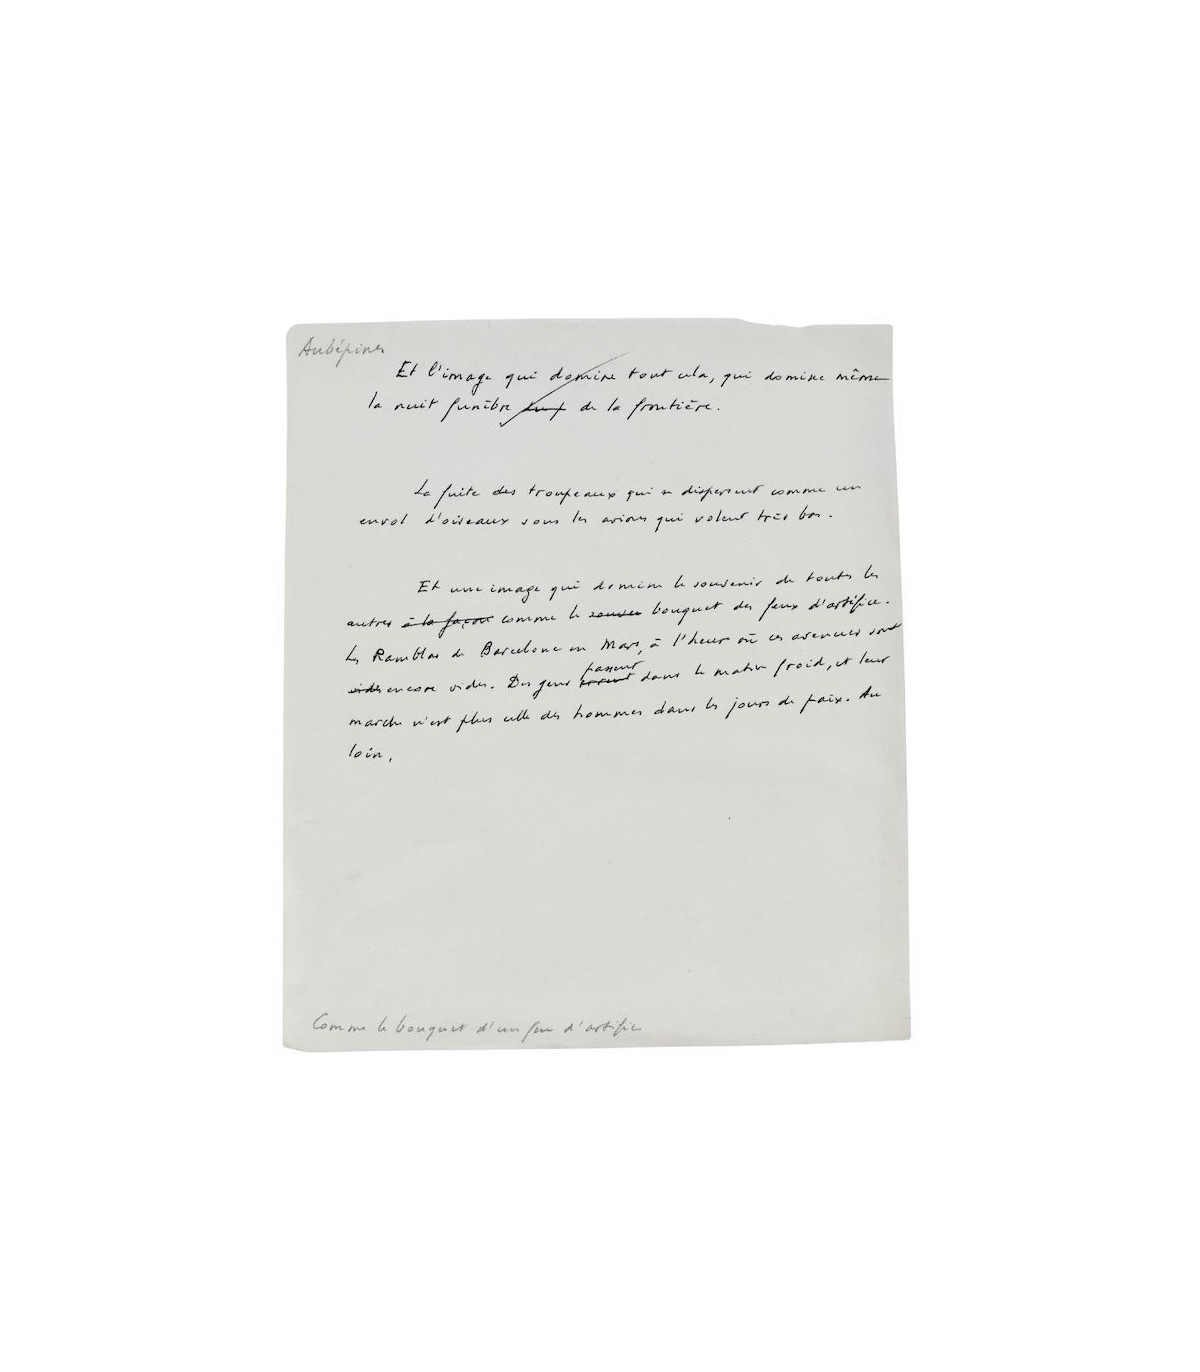 Aubépines
Et l'image qui domine tout cela, qui domine même
la nuit funèbre de la frontière.
La fuite des troupeaux qui se dispersent comme un
envol d'oiseaux sous les avions qui volent très bas.
Et une image qui domine le souvenir de toutes les
autres à la façon comme le bouquet des feux d'artifice.
Les Ramblas de Barcelone en Mars, à l'heure où ces avenues sont
vides encore vides. Des gens errent passent dans le matin froid, et leur
marche n'est plus celle des hommes dans les jours de paix. Au
loin,
Comme le bouquet d'un feu d'artifice